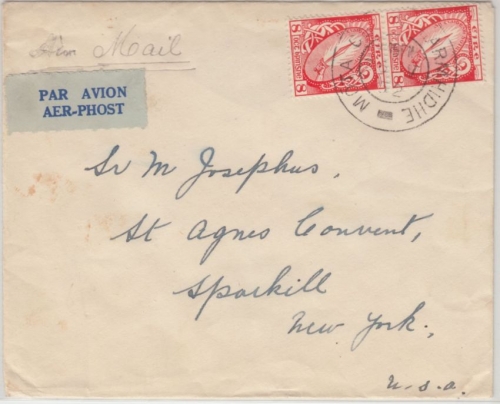 Air Mail
PAR AVION
AER-PHOST
Sr M Josephus,
St Agnes Convent,
Sparkill
New York.,
U.S.A.